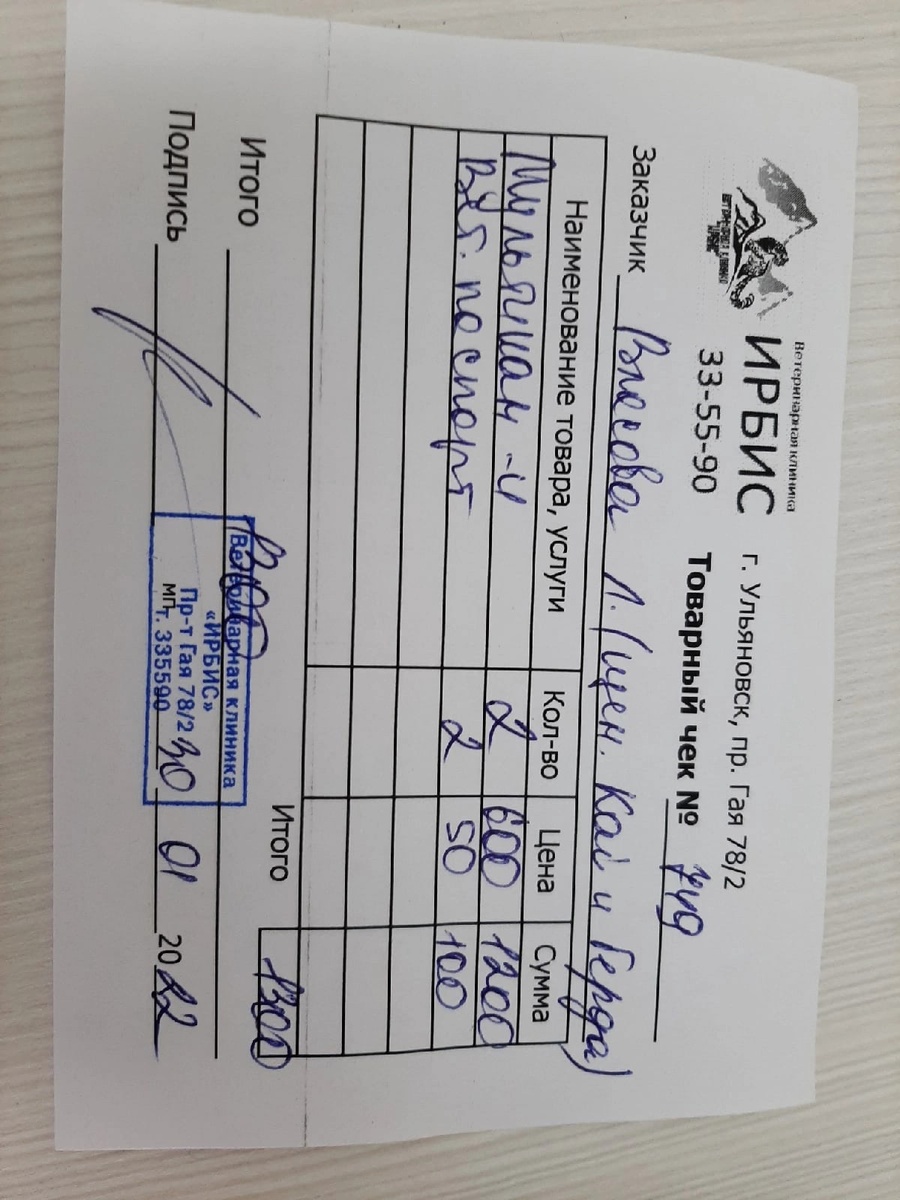 Ветеринарная клиника
ИРБИС г. Ульяновск, пр. Гая 78/2
33-55-90 Товарный чек № 749
ВЕТЕРИНАРНАЯ КЛИНИКА
"ИРБИС"
Заказчик Власова Л. (щен. Кай и Герда)
Наименование товара, услуги Кол-во Цена Сумма
Мультикан-4 2 600 1200
Вет. паспорт 2 50 100
Итого 1300
Итого 1300
Подпись МП 30 01 2022
Ветеринарная клиника
«ИРБИС»
Пр-т Гая 78/2
т. 335590